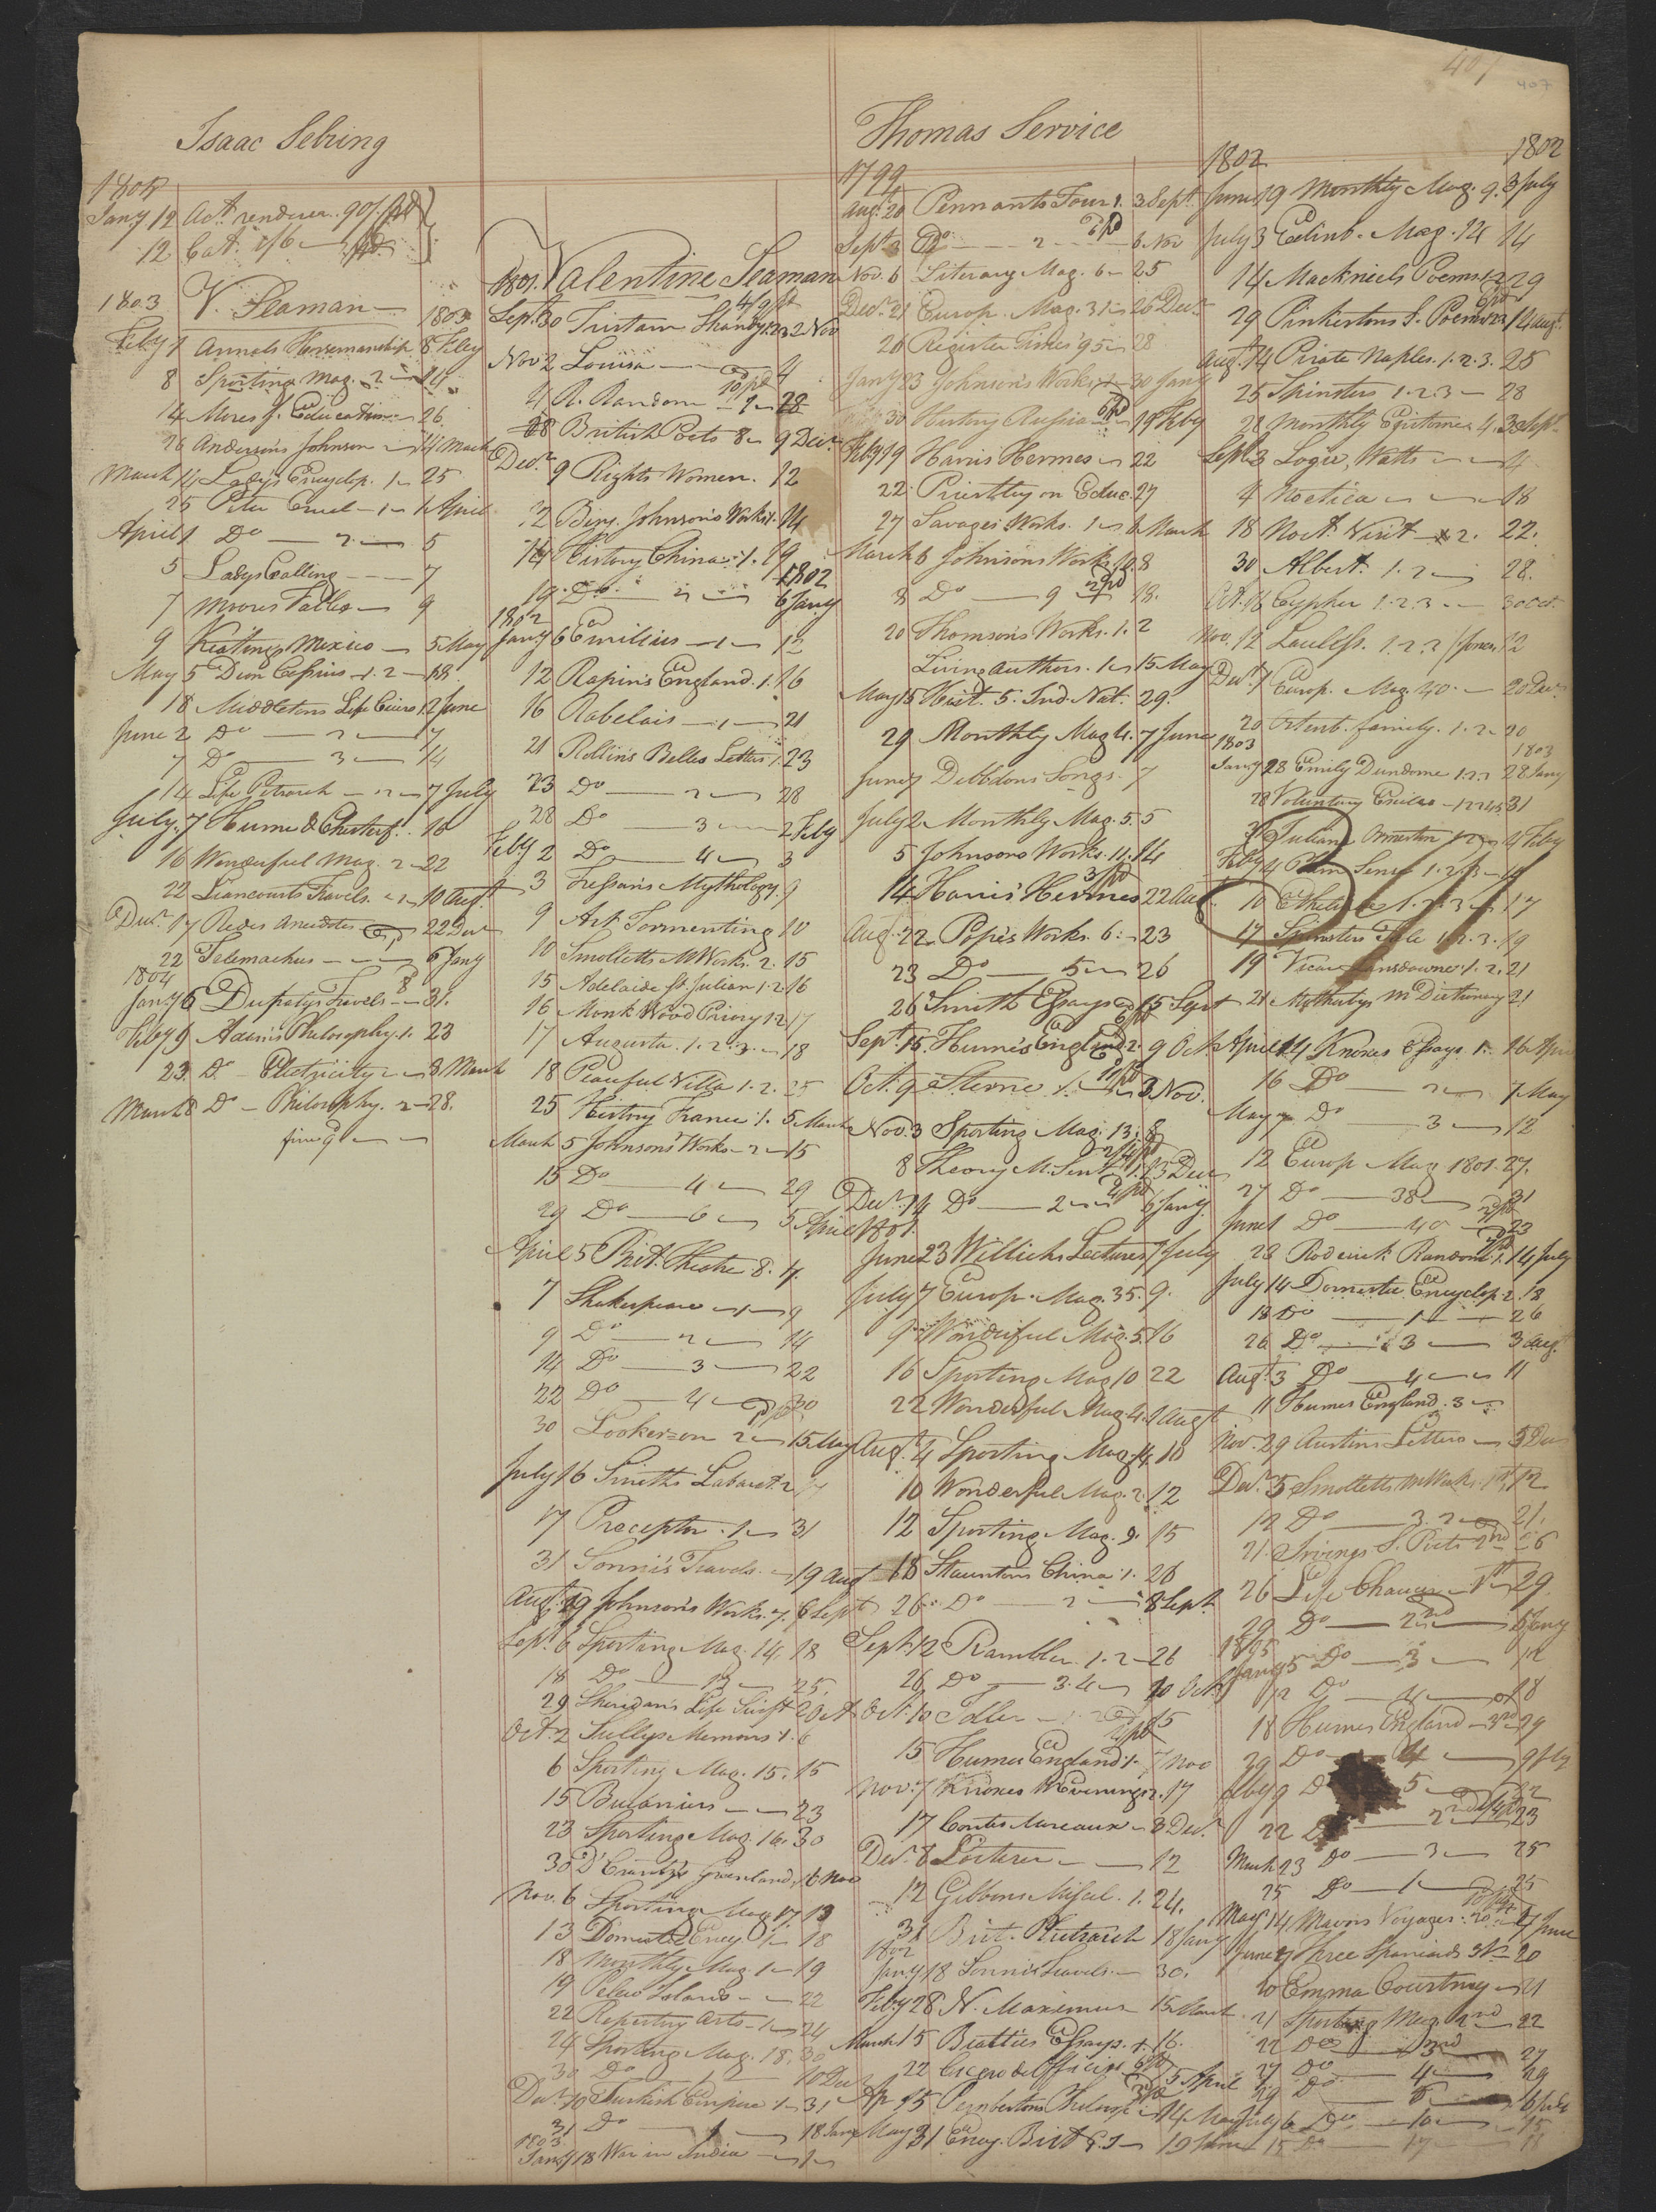 407
407
Isaac Sebring
Jany 12 Act. render. 90/ pd
12 Cat. 2/6
1803 V. Seaman 1803
Feby 1 Annals Horsemanship 8 Feby
8 Sporting Mag. 2 14
14 Mores f. Education 26
26 Anderson's Johnson 14 March
March 14 Ladys Encyclop. 1 25
25 Peter Cruel 1 1 April
April 1 Do 2 5
5 Ladys Calling 7
7 Moores Fables 9
9 Keatings Mexico 5 May
May 5 Dion Cassius 1.2 18
18 Middletons Life Cicero 1. 2 June
June 2 Do 2 7
7 Do 3 14
14 Life Petrarch 7 July
July 7 Hume & Chesterf. 16
16 Wonderful Mag. 2 22
22 Liancourts Travels 10 Augt
Decr 17 Redes Anecdotes 22 Decr
22 Telemachus 6 Jany
1804
Jany 6 Dupatys Travels 31.
Feby 9 Adams Philosophy. 1. 23
23 Do Electricity 3 March
March 3 Do Philosophy. 2 28.
fines
1801. Valentine Seaman
Sept. 30 Tristam Shandy 1.2.3 2 Nov
Nov 2 Louisa 4
4 R. Random 2 28
28 British Poets 8 9 Decr
Decr 9 Rights Women. 12
12 Benj. Johnson's Works 1. 14
14 History China 1. 19
1802
19 Do 2 6 Jany
1802
Jany 6 Emilius 1 12
12 Rapin's England. 1. 16
16 Rabelais 1 21
21 Rollin's Belles Letters 1. 23
23 Do 2 28
28 Do 3 2 Feby
Feby 2 Do 4 3
3 Tressan's Mythology 9
9 Art Tormenting 10
10 Smolletts M Works. 2. 15
15 Adelaide St. Julian 1.2 16
16 Monk Wood Priory 1.2 17
17 Augusta. 1.2.3. 18
18 Peaceful Villa 1.2. 25
25 History France 1. 5 March
March 5 Johnsons Works 2 15
15 Do 4 29
29 Do 6 5 April
April 5 Brit. Theatre. 8. 7.
7 Shakespeare 1 9
9 Do 2 14
14 Do 3 22
22 Do 4 30
30 Looker on 2 15 May
July 16 Smiths Laborat. 2 17
17 Preceptor. 1 31
31 Sonni's Travels. 19 Aug
Augt. 19 Johnson's Works. 7. 6 Sept
Sept. 6 Sporting Mag. 14. 18
18 Do 13 25.
29 Sheridan's Life Swift 2 Oct
Oct. 2 Sullys Memoirs 1. 6
6 Sporting Mag. 15. 15
15 Bucaniers 23
23 Sporting Mag. 16. 30
30 D'Crantz's Greenland. 6 Nov
Nov. 6 Sporting Mag 17. 13
13 Domestic Ency. 1 18
18 Monthly Mag. 1 19
19 Pelew Islands 22
22 Repertory Arts 1 24
24 Sporting Mag. 18. 30
30 Do 10 Decr
Decr 10 Turkish Empire 1 31
31 Do 18 Jany
1803
Jany 18 War in India
Thomas Service
1799
Aug. 20 Pennants Tour 1. 3 Sept.
Sept 3 Do 2 6 Nov
Nov. 6 Literary Mag. 6 25
Decr 21 Europ. Mag. 31 26 Decr
26 Register Times 95 28
Jany 23 Johnson's Works 30 Jany
30 History Russia 19 Feby
Feby 19 Harris Hermes 22
22 Priestley on Educ. 27
27 Savages Works. 1 6 March
March 6 Johnsons Work 10. 8
8 Do 9 18.
20 Thomson's Works. 1. 2
Living Authors. 1 15 May
May 15 Hist. 5. Ind. Nat. 29.
29 Monthly Mag 4. 7 June
June 7 Dibbdons Songs. 7
July 2 Monthly Mag. 5. 5
5 Johnsons Works. 11. 14
14 Harris Hermes 22 Aug
Aug. 22 Pope's Works. 6. 23
23 Do 5 26
26 Smith Essays 15 Sept
Sept. 15. Hume's England 2. 9 Oct
Oct. 9 Sterne 1. 3 Nov.
Nov. 3 Sporting Mag. 13. 8
8 Theory M. Sent. 1. 13 Decr
Decr 14 Do 2 6 Jany
1801.
June 23 Willichs Lectures 7 July
July 7 Europ. Mag. 35. 9.
9 Wonderful Mag. 5. 16
16 Sporting Mag 10 22
22 Wonderful Mag. 4. 4 Augt
Augt. 4 Sporting Mag. 14. 10
10 Wonderful Mag. 2. 12
12 Sporting Mag. 9. 15
18 Stauntons China 1. 26
26 Do 2 8 Sept.
Sept. 12 Rambler. 1.2 26
26 Do 3.4 10 Oct
Oct. 10 Idler 15
15 Humes England 1. 7 Nov
Nov. 7 Knoxes W Evenings 2. 17
17 Contes Moraux 8 Decr
Decr 8 Loiterer 12
12 Gibbons Miscel. 1. 24.
31 Brit. Plutarch 18 Jany
1802
Jany 18 Sonnis Travels 30.
Feby 28 N. Maximus 15 March
March 15 Beatties Essays. 1. 16.
22 Cicero de Officiis 5 April
Ap. 15 Pembertons Philosop 14 May
May 31 Ency. Brit 19 June
1802 1802
June 19 Monthly Mag. 9. 3 July
July 3 Edinb. Mag. 14 14
14 Mackniels Poems 1.2 29
29 Pinkertons S. Poems 14 Augt.
Augt. 14 Pirate Naples. 1.2.3. 25
25 Spinsters 1.2.3 28
28 Monthly Epitome 4. 3 Sept.
Sept 3 Logic, Watts 4
4 Noetica 18
18 Noct. Visit 2. 22.
30 Albert. 1.2 28.
Oct. 16 Cypher 1.2.3. 30 Oct.
Nov. 12 Lawless. 1.2.3 12
Decr 1 Europ. Mag. 40. 20 Decr
20 Ortenb. family. 1.2 20
1803 1803
Jany 28 Emily Dundorne 1.2.3 28 Jany
28 Voluntary Exiles 1.2.3.4.5 31
Julian Ormerton 4 Feby
Feby 4 Plain Sense 1.2.3
10 Ethelinde 1.2.3 17
17 Spinsters Tale 1.2.3. 19
19 Vicar Lansdowne 1.2. 21
21 Motherbys M Dictionary 21
April 14 Knoxes Essays 1. 16 Apri
16 Do 2 7 May
May 7 Do 3 12
12 Europ Mag 1801. 27.
27 Do 38 31
June 1 Do 40 23
23 Roderick Random 1. 14 July
July 14 Domestic Encyclop 2. 18
18 Do 1 26
26 Do 3 3 Aug.
Augt 3 Do 4 11
11 Humes England. 3
Nov. 29 Austins Letters 5 Dec
Decr 5 Smolletts M Works 1st 12
12 Do 3.2 21.
21 Irvings S. Poets 2nd 26
26 Life Chaucer 1st 29.
29 Do 2nd 5 Jany
1805
Jany 5 Do 3 12
12 Do 4 18
18 Humes England 3rd 29
29 Do 4 9 Feby
Feby 9 Do 5 22
22 Do 2nd 23
March 23 Do 3 25
25 Do 1 25
May 14 Mavors Voyages 20 7 June
June 7 Three Spaniards 20
20 Emma Courtney 21
21 Sporting Mag. 2nd 22
22 Do 3rd 27
27 Do 4 29
29 Do 6 July
July 6 Do 10 15
15 Do 17 18